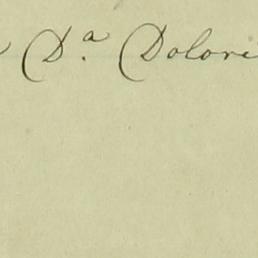 D.ª Dolore